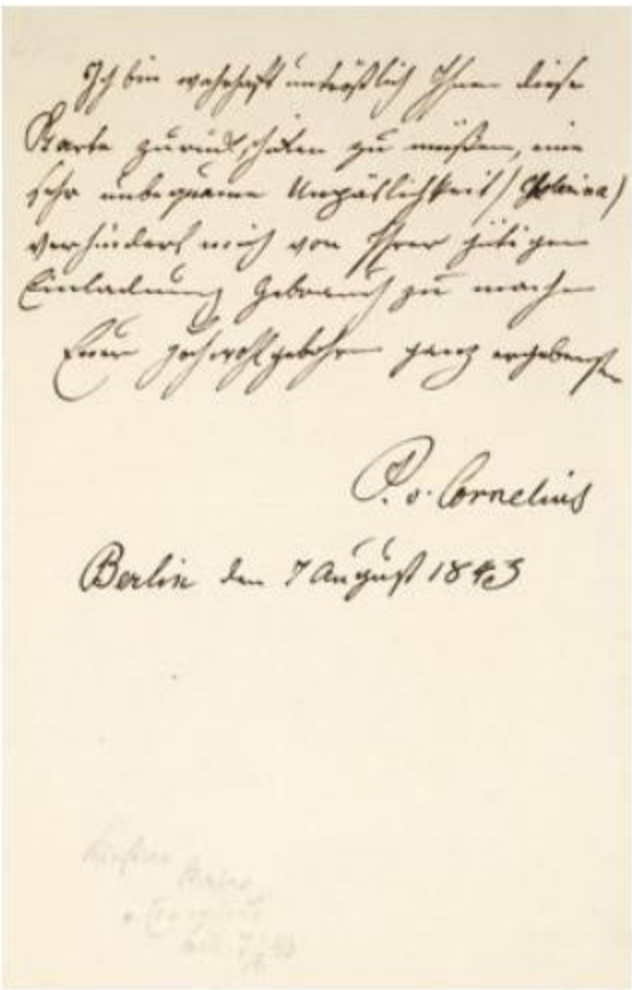 Ich bin wahrhaft untröstlich Ihnen diese
Karte zurück schicken zu müßen, eine
sehr unbequeme Unpäslichkeit (Cholerina)
verhindert mich von Ihrer gütigen
Einladung Gebrauch zu machen
Euer Hochwohlgebohren ganz ergebenster
P. v. Cornelius
Berlin den 7 August 1843